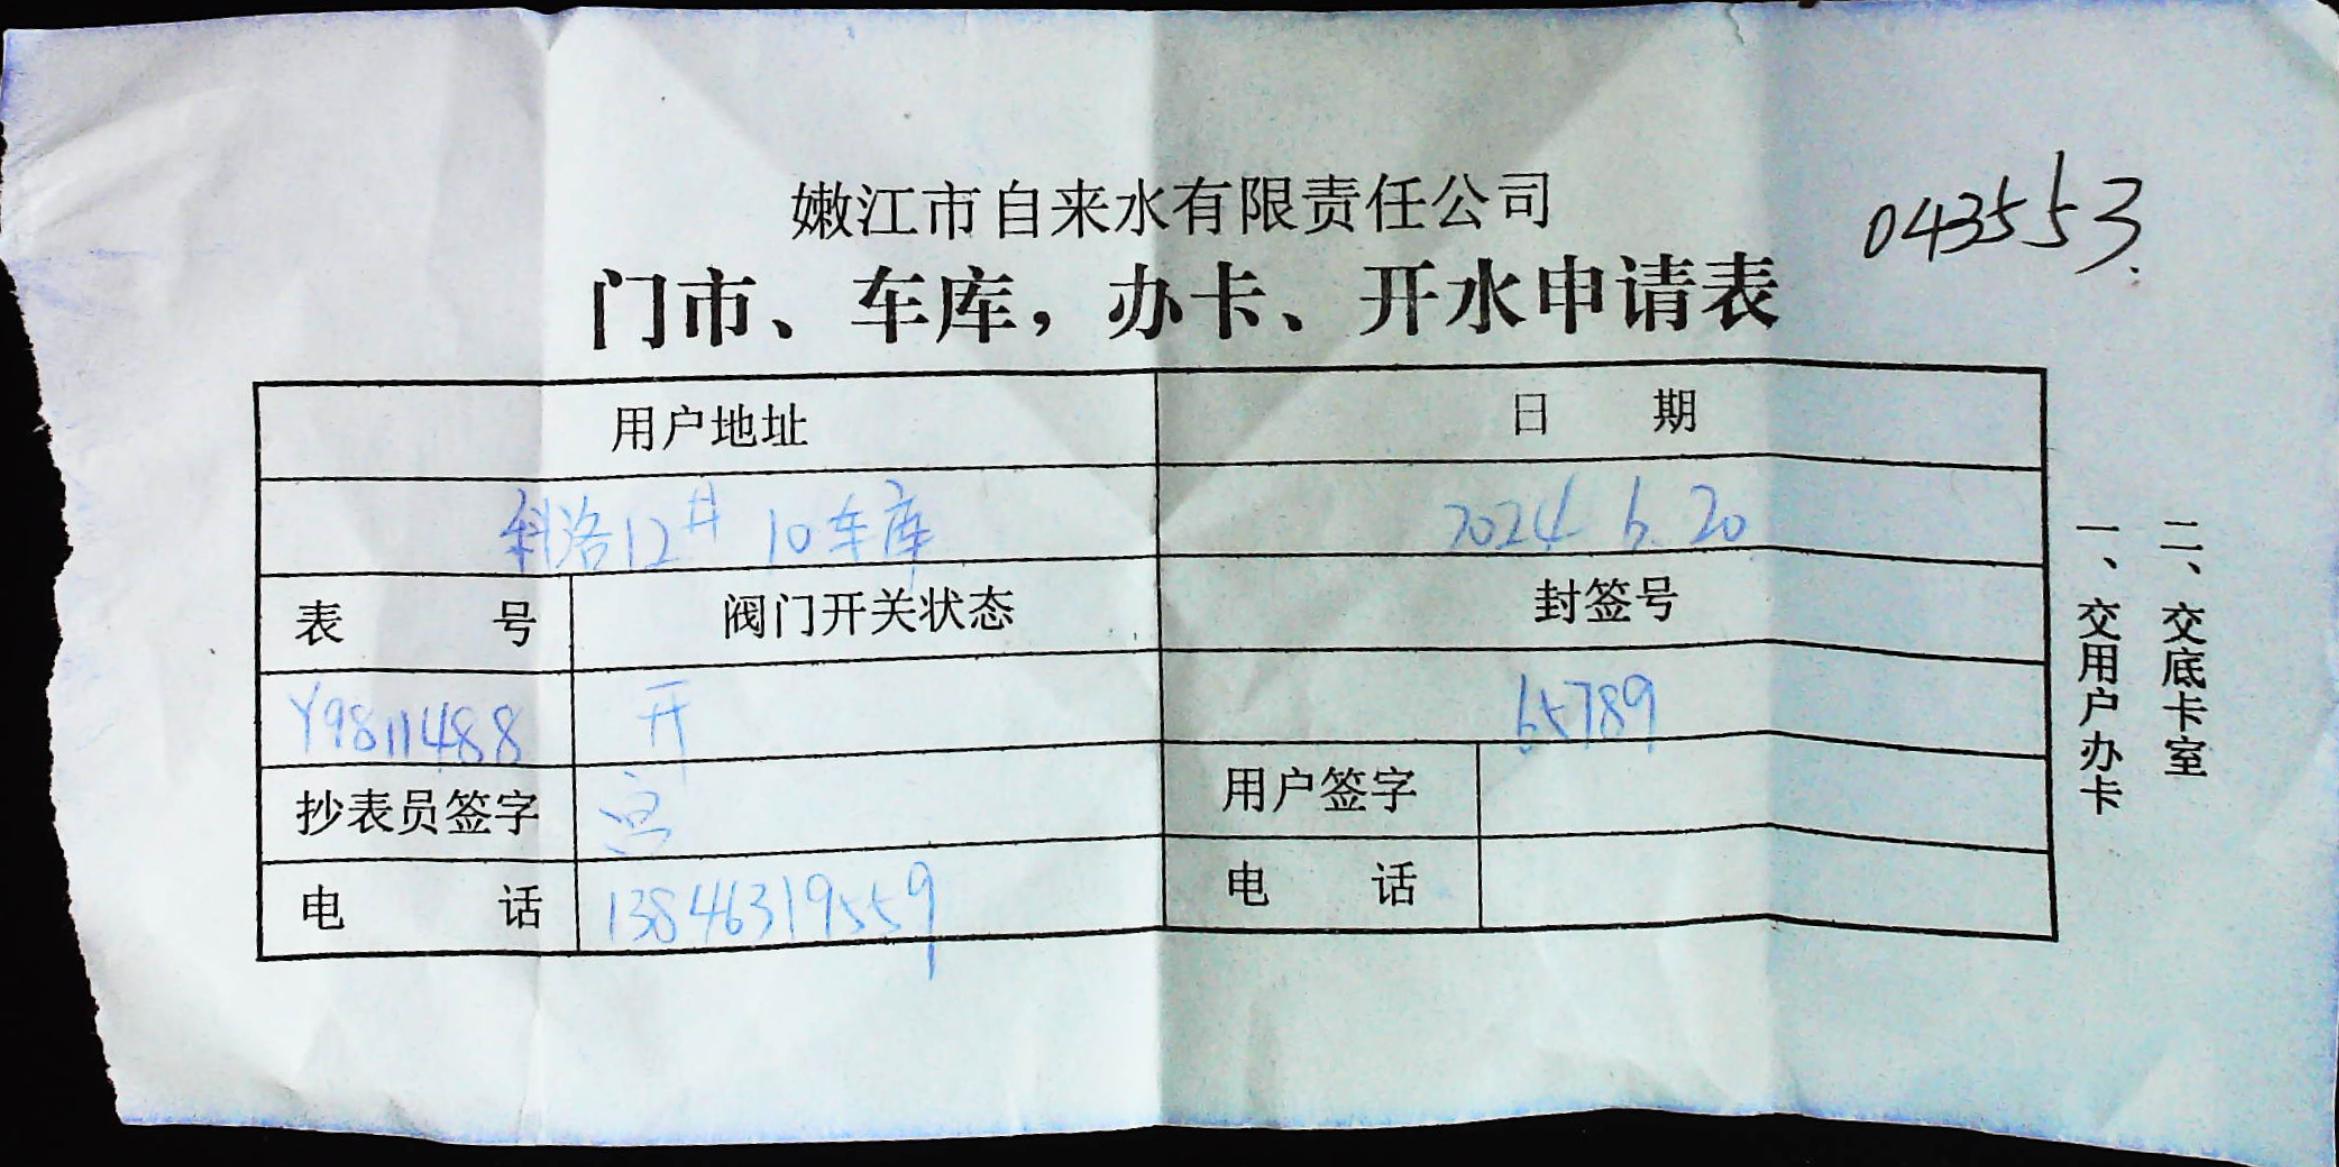 嫩江市自来水有限责任公司
043553
门市、车库，办卡、开水申请表
用户地址 日 期
科洛12# 10车库 2024 6.20
表 号 阀门开关状态 封签号
Y9811488 开 65789
抄表员签字 宫 用户签字
电 话 13846319559 电 话
一、交用户办卡
二、交底卡室